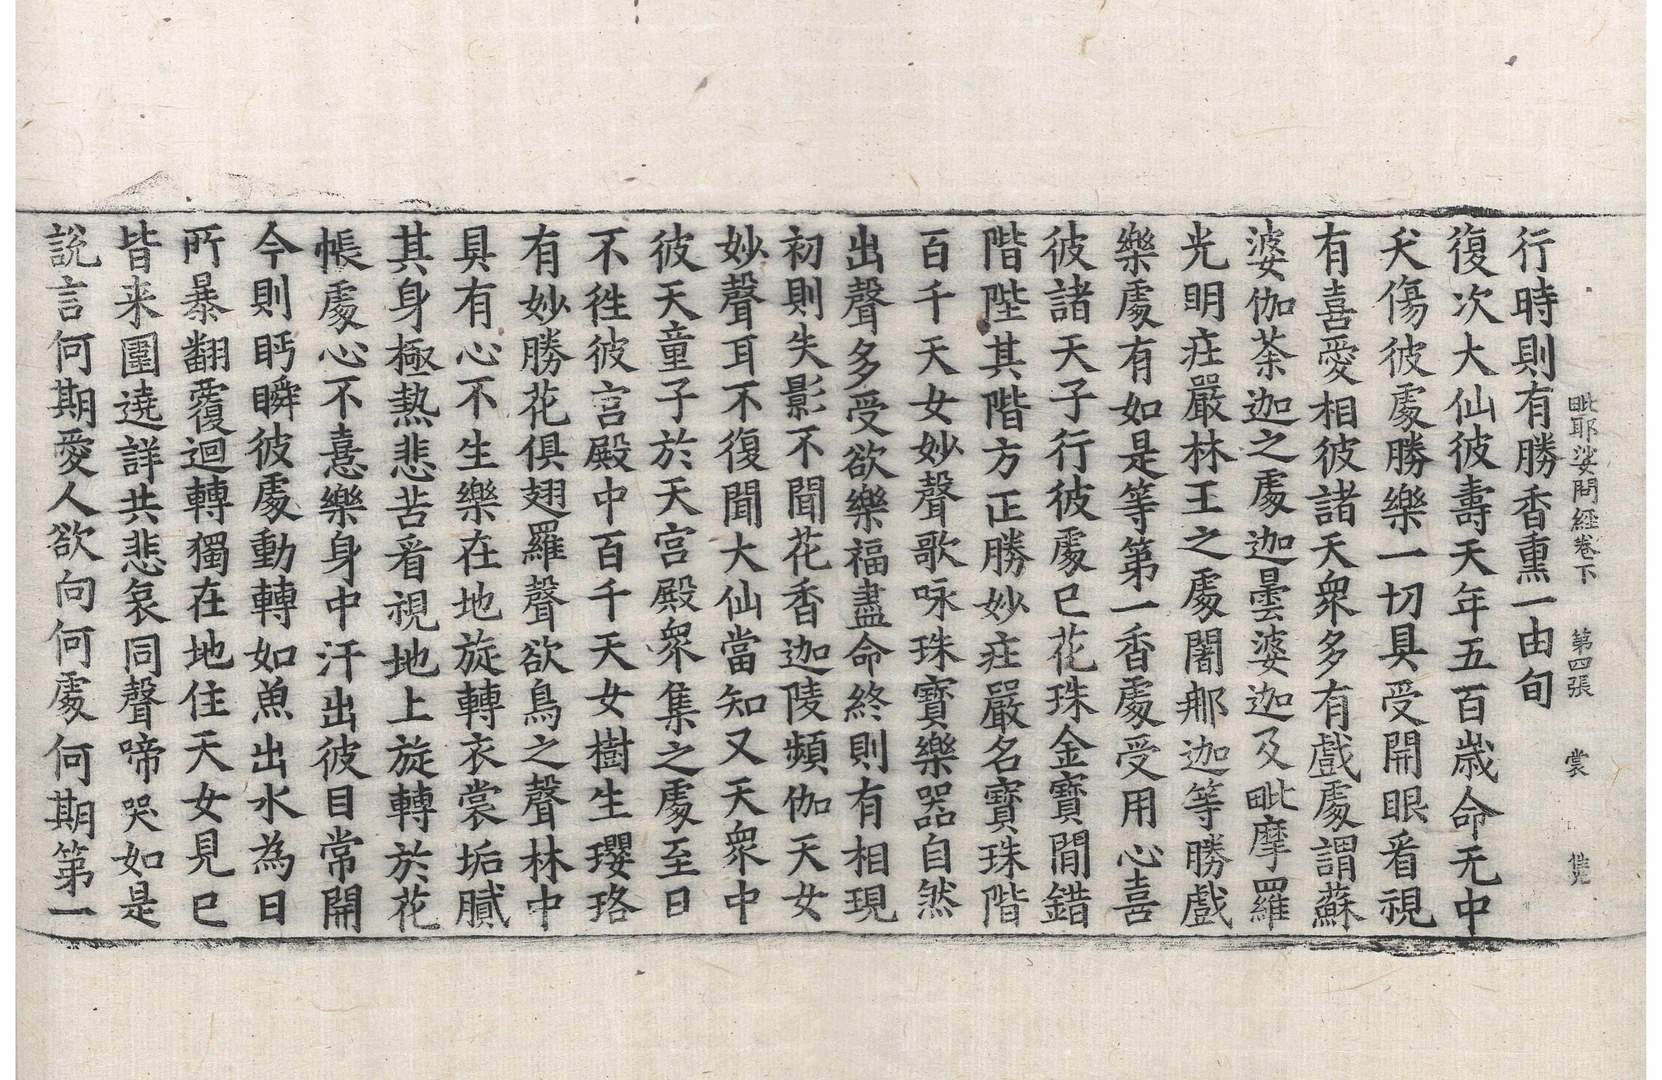 毗耶娑問經卷下　第四張　裳
行時則有勝香熏一由旬
復次大仙彼壽天年五百歲命无中
夭傷彼處勝樂一切具受開眼看視
有喜愛相彼諸天衆多有戲處謂蘇
婆伽荼迦之處迦曇婆迦及毗摩羅
光明庄嚴林王之處闍那迦等勝戲
樂處有如是等第一香處受用心喜
彼諸天子行彼處已花珠金寶閒錯
階陛其階方正勝妙庄嚴名寶珠階
百千天女妙聲歌咏珠寶樂器自然
出聲多受欲樂福盡命終則有相現
初則失影不聞花香迦陵頻伽天女
妙聲耳不復聞大仙當知又天衆中
彼天童子於天宮殿衆集之處至日
不徃彼宮殿中百千天女樹生瓔珞
有妙勝花俱翅羅聲欲鳥之聲林中
具有心不生樂在地旋轉衣裳垢膩
其身極熱悲苦看視地上旋轉於花
帳處心不憙樂身中汗出彼目常開
今則眄瞬彼處動轉如魚出水為日
所暴翻覆迴轉獨在地住天女見已
皆来圍遶詳共悲哀同聲啼哭如是
說言何期愛人欲向何處何期第一